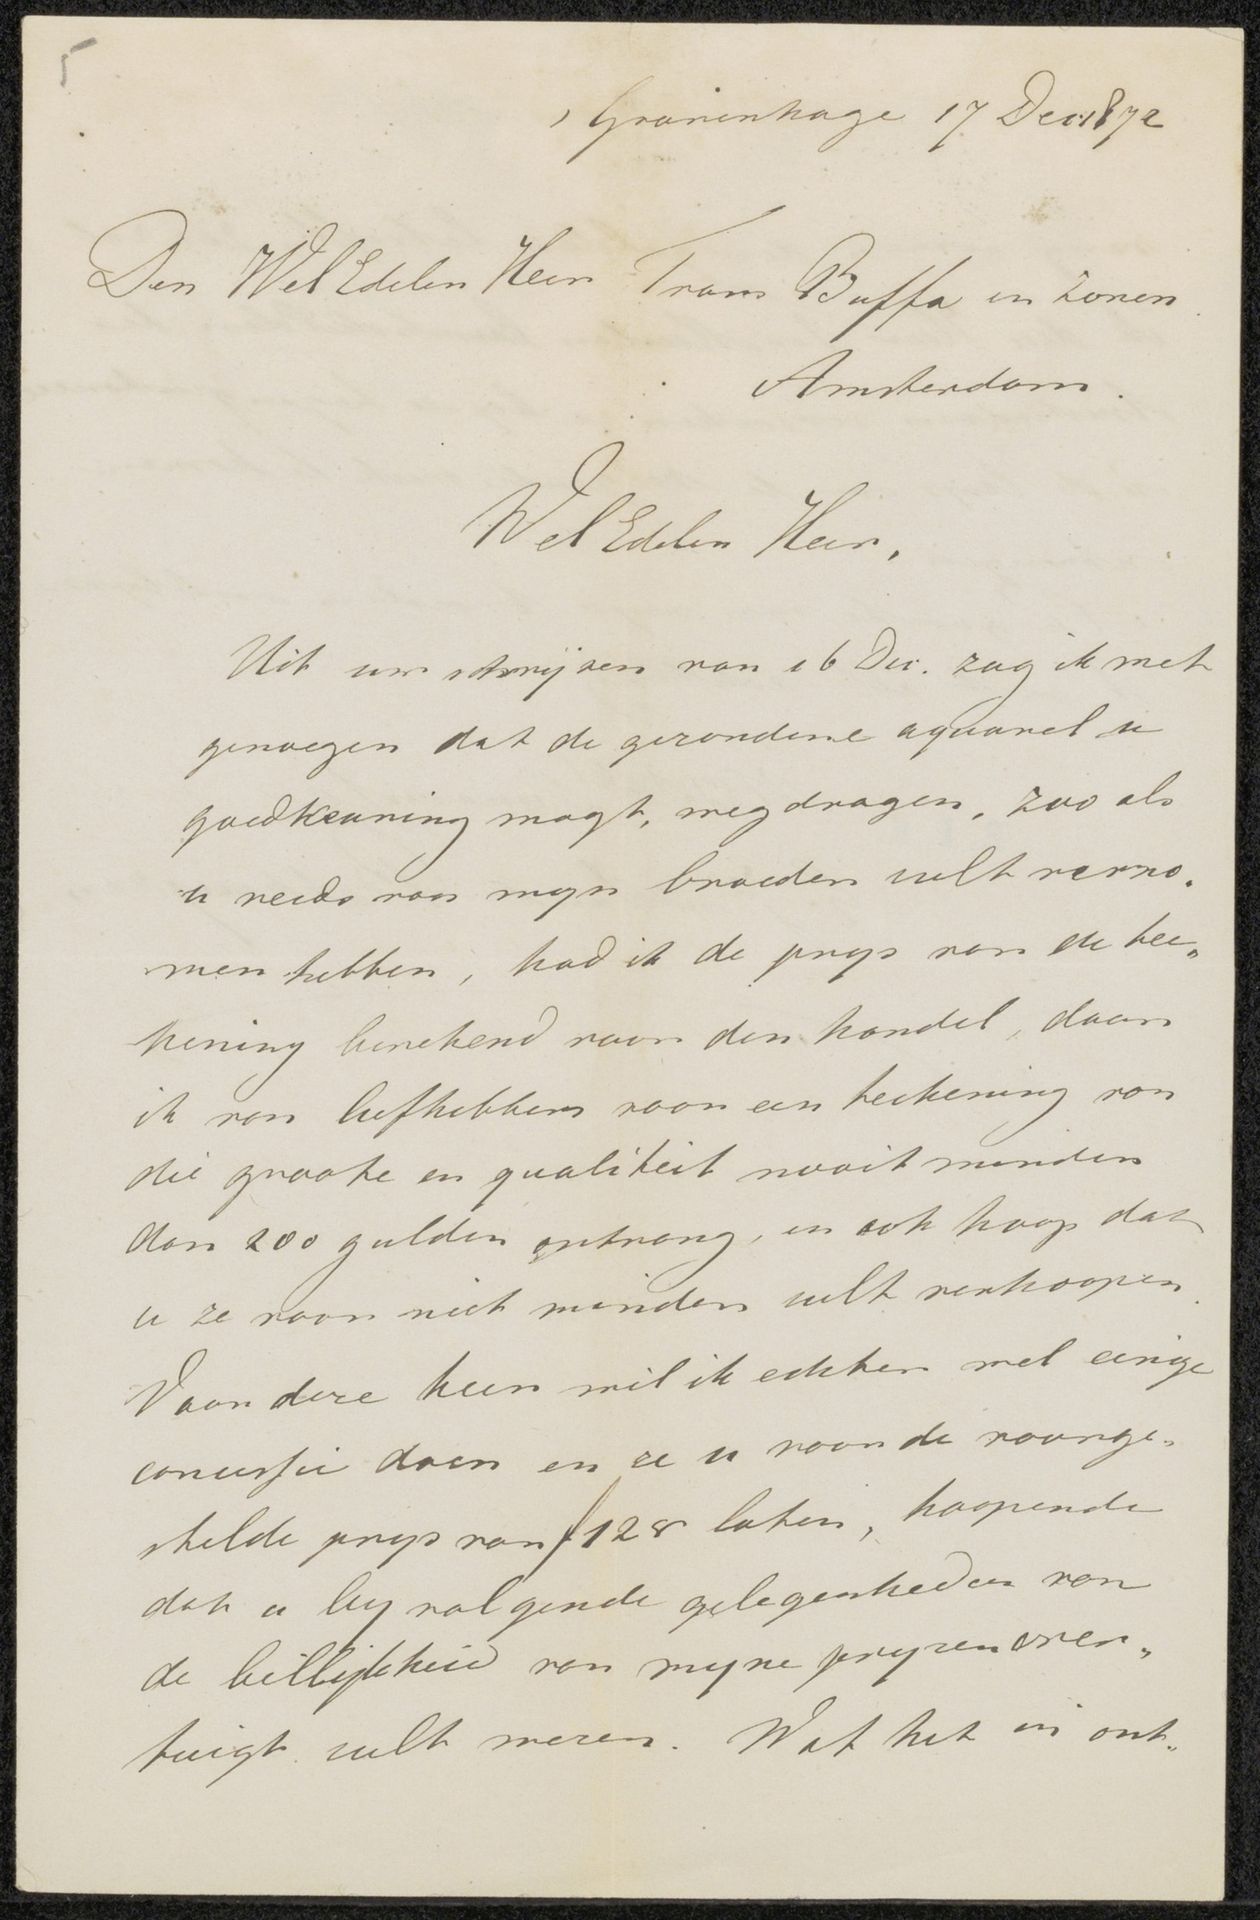 's Gravenhage 17 Dec 1872
Den WelEdelen Heer Frans Buffa en Zonen
Amsterdam.
WelEdelen Heer,
Uit uw schrijven van 16 Dec. zag ik met
genoegen dat de gezondene aquarel u
goedkeuring mogt, wegdragen, zoo als
u reeds van myn broeder zult verno„
men hebben, had ik de prys van de tee„
kening berekend voor den handel, daar
ik van liefhebbers voor een teekening van
die groote en qualiteit nooit minder
dan 200 gulden ontvang, en ook hoop dat
u ze voor niet minder zult verkoopen.
Vaor deze keer wil ik echter wel eenige
concessie doen en ze u voor de voorge„
stelde prys van f 128 laten, hoopende
dat u by volgende gelegenheden van
de billijkheid van myne pryzen over„
tuigt zult wezen. Wat het in ont„